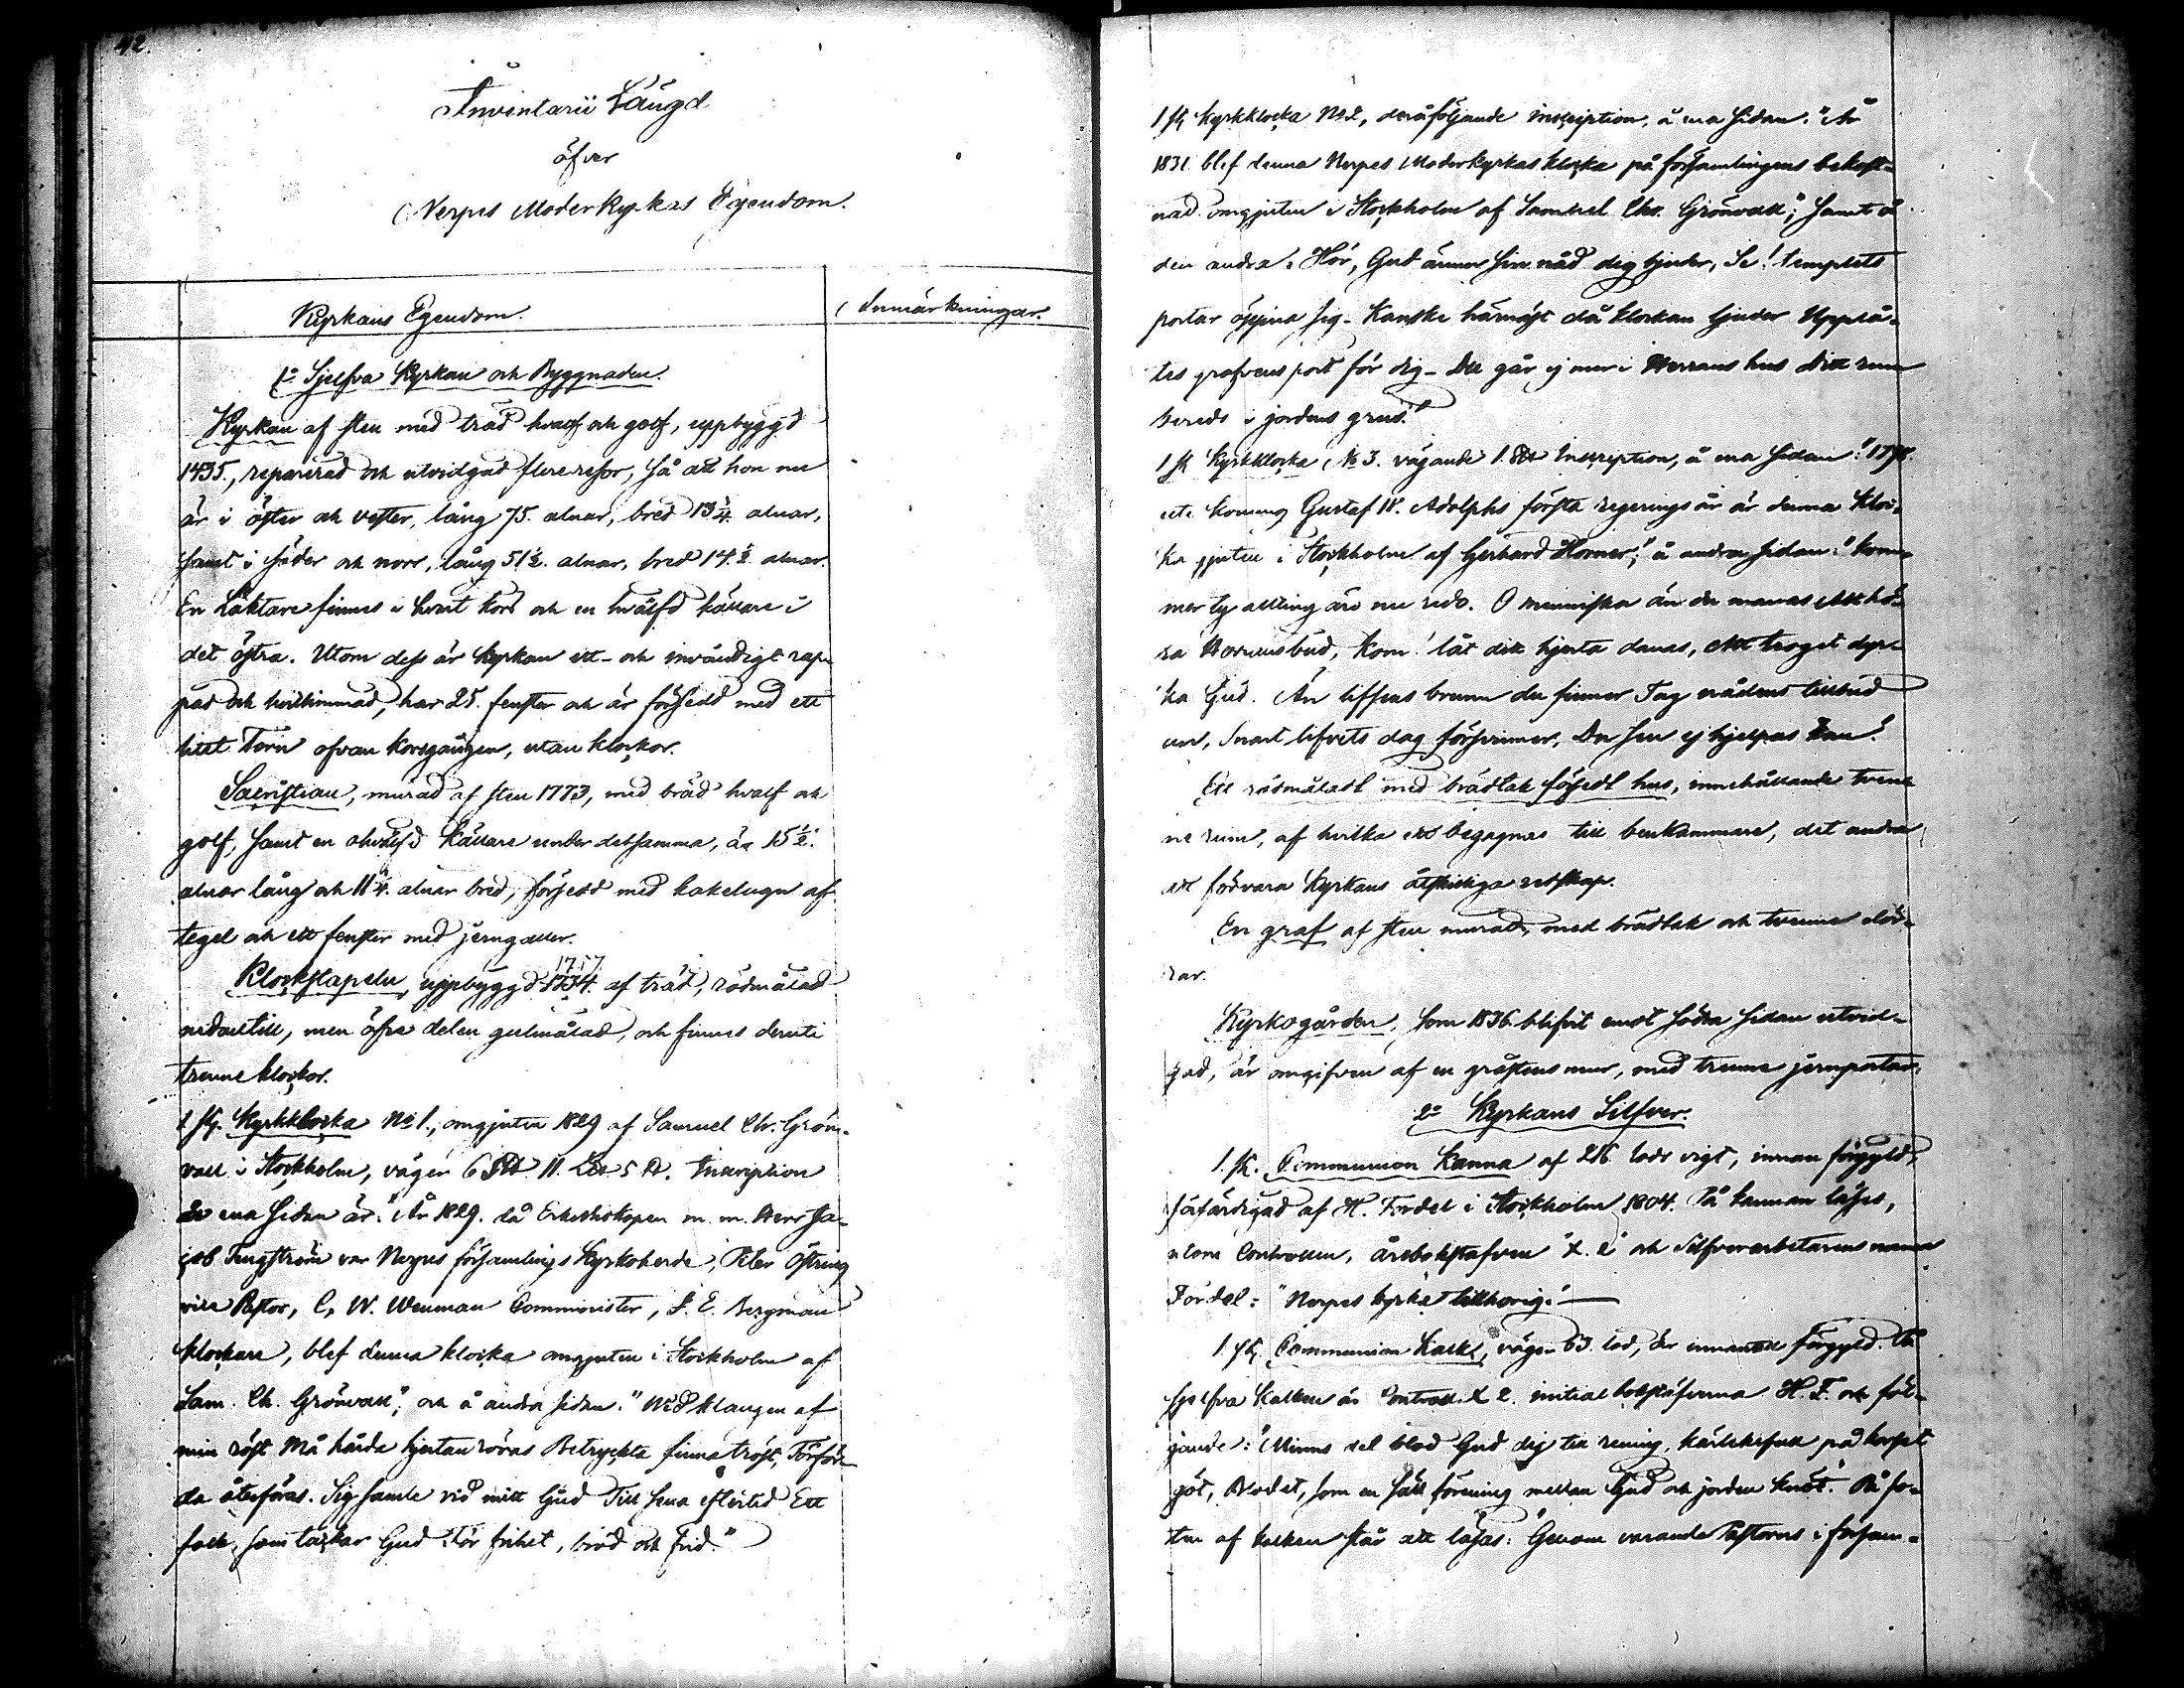 42.
Inventarii Längd
öfver
Nerpes Moderkyrkas Egendom.
Kyrkans Egendom.
Anmärkningar.
1o Sjelfva Kyrkan och Byggnaden.
Kyrkan af sten med träd hvalf och golf, uppbyggd
1435, reparerad och utvidgad flere resor, så att hon nu
är i öster och vester, lång 75. alnar, bred 13 1/4 alnar,
samt i söder och norr, lång 51 1/2. alnar, bred 14. 1/2 alnar.
En Läktare finnes i hvart kors och en hvälfd källare i
det östra. Utom dess är kyrkan ut- och invändigt rap-
pad och hvitlimmad, har 25. fenster och är försedd med ett
litet Torn ofvan korsgången, utan klockor.
Sacristian, murad af sten 1773, med bräd hvalf och
golf, samt en ohvälfd källare under detsamma, är 15 1/2.
alnar lång och 11 1/4. alnar bred, försedd med kakelugn af
tegel och ett fenster med jerngaller.
1717
Klockstapeln, uppbyggd 1734. af träd, rödmålad
nedantill, men öfre delen gulmålad, och finnes deruti
trenne klockor.
1 st. Kyrkklocka No 1., omgjuten 1829 af Samuel Chr. Grön-
vall i Stockholm, väger 6 Skt 11. Lt 5 t. Inscription
å ena sidan är: "År 1829. då Erkebiskopen m. m. Herr Ja-
cob Tengström var Nerpes församlings Kyrkoherde, Peter Östring
vice Pastor, C. W. Wenman Comminister, J. E. Bergman
klockare, blef denna klocka omgjuten i Stockholm af
Sam. Ch. Grönvall", och å andra sidan: "Wid klangen af
min röst Må hårda hjertan röras Betryckta finna tröst, Förför-
da återföras. Sig samle vid mitt ljud Till sena eftertid Ett
folk, som tackar Gud För frihet, bröd och frid."
1 st Kyrkklocka No 2, derå följande inscription, å ena sidan: "År
1831 blef denna Nerpes Moderkyrkas klocka på församlingens bekost-
nad omgjuten i Stockholm af Samuel Chr. Grönvall", samt å
den andra: Hör, Gud ännu sin nåd dig bjuder, Se! templets
portar öppna sig - Kanske härnäst då klockan ljuder Upplå-
tes grafvens port för dig - Du går ej mer i Herrans hus Ditt rum
bereds i jordens grus."
1 st Kyrkklocka No 3. vägande 1. Skt Inscription, å ena sidan: "1792
uti konung Gustaf IV. Adolphs första regerings år är denna kloc-
ka gjuten i Stockholm af Gerhard Horner", å andra sidan: "Kom-
mer ty allting äro nu redo. O menniska än du manas Att hö-
ra Herrans bud, Kom! låt ditt hjerta danas, Att troget dyr-
ka Gud. Än liffsens brunn du finner Tag nådens tillbud
an, Snart lifvets dag försvinner, Du sen ej hjelpas kan."
Ett rödmåladt med brädtak försedt hus, innehållande tven-
ne rum, af hvilka ett begagnas till benkammare, det andra
att förvara Kyrkans åtskilliga redskap.
En graf af sten murad, med brädtak och tvenne dör-
rar.
Kyrkogården, som 1836 blifvit emot södra sidan utvid-
gad, är omgifven af en gråstens mur, med trenne jernportar.
2o Kyrkans Silfver.
1. st. Communion Kanna af 216 lods vigt, innan förgyld,
förfärdigad af H. Fordel i Stockholm 1804. På kannan läses,
utom Controllen, årsbokstafven "X. 2" och Silfverarbetarens namn
Fordel: "Nerpes kyrka tillhorig."
1. st. Communion Kalk, väger 63. lod, är innantill förgyld. På
sjelfva kalken är Controll. X 2. initial bokstäfverna H. F. och föl-
jande: "Minns det blod Gud dig till rening, Kärleksfull på korset
göt, Blodet, som en säll förening mellan Gud och jorden knöt." På fo-
ten af kalken står att läsas: "Genom varande Pastorns i försam-